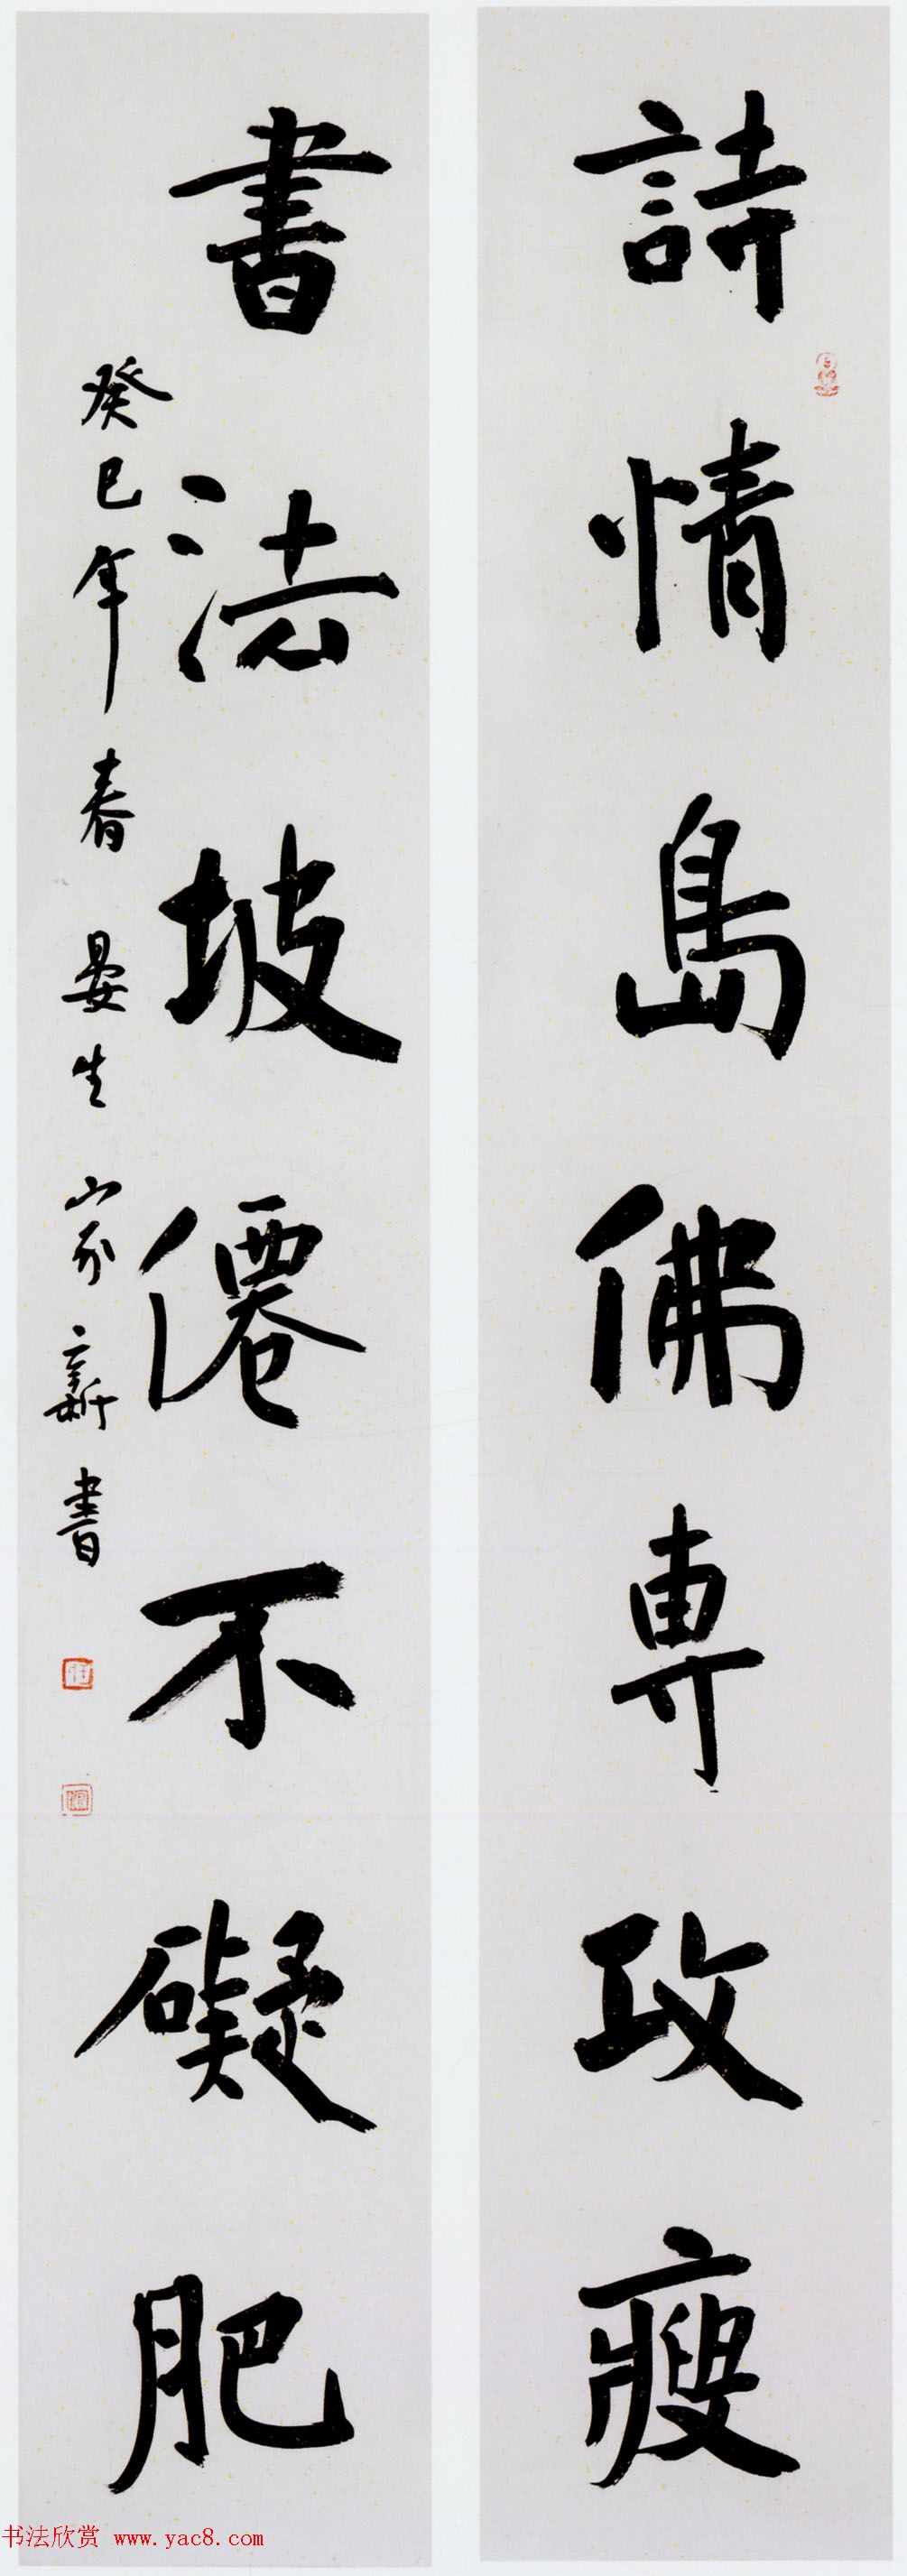 詩情島佛専攻瘦
書法坡僊不礙肥
癸巳年春晏生家新書
书法欣赏 www.yac8.com